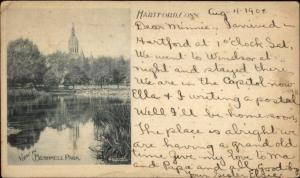 HARTFORD, CONN.
Aug-11-1902
Dear Minnie, I arrived in
Hartford at 1 o'clock Sat.
We went to Windsor at
night and stayed there
We are in the Capitol now
Ella & I writing a postal
Well I'll be home soon
The place is alright we
are having a grand old
time Give my love to Ma
and Papa and all Good by
your Sister Elsie
VIEW IN BUSHNELL PARK.